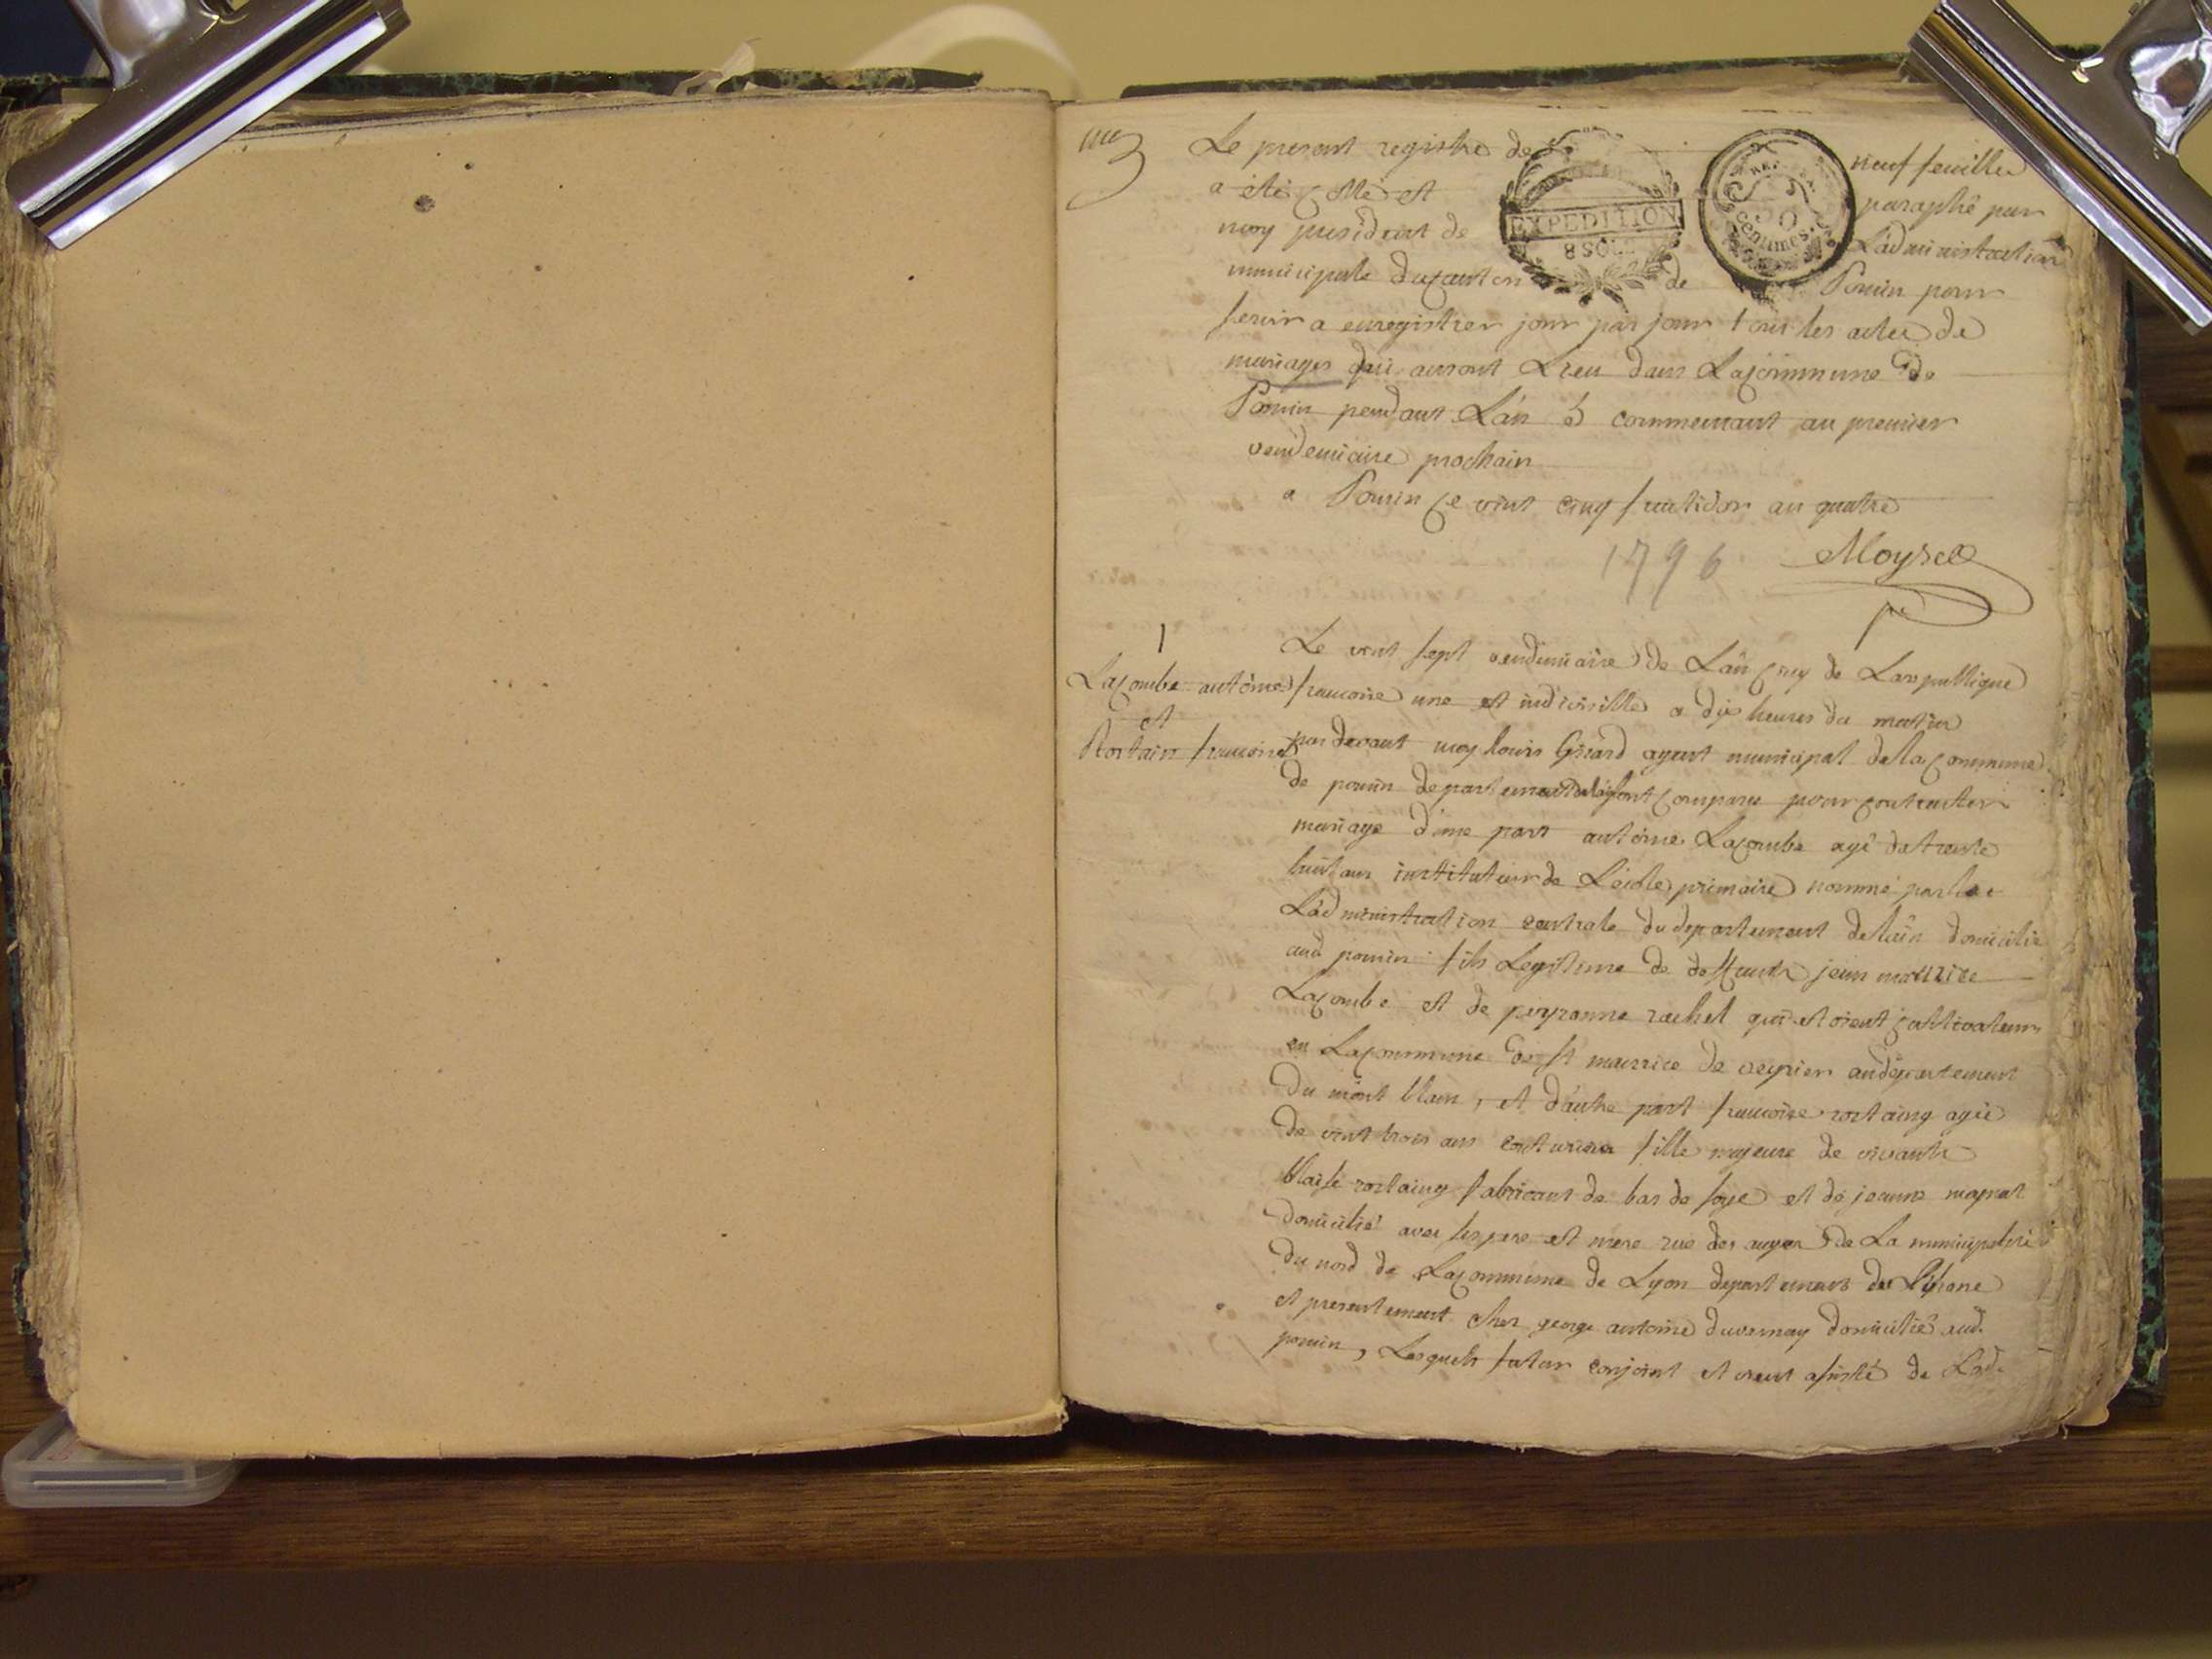 Le present registre de neuf feuilles
a été cotté et paraphé par
moy president de L'administration
municipale du canton de Poncin pour
servir a enregistrer jour par jour tous les actes de
mariages qui auront Lieu dans La commune de
Poncin pendant L'an 5 commencant au premier
vendemiaire prochain
a Poncin ce vint cinq fructidor an quatre
EXPEDITION
8 SOLS
REP. FRA.
50
centimes.
1796
Moysel
1
Lacombe antoine
et
Rortain francoise
Le vint sept vendemiaire de L'an cinq de La republique
francoise une et indivisille a dix heures du matin
par devant moy louis Girard agent municipal de la commune
de poncin departement de l'ain sont comparu pour contracter
mariage d'une part antoine Lacombe agé de trente
huit ans instituteur de L'école primaire nommé par
L'administration centrale du departement de l'ain domicilié
aud poncin fils Legitime de deffunts jean maurice
Lacombe et de peyronne rachel qui etoient cultivateurs
en La commune de st maurice de veyrier au departement
du mont blanc, et d'autre part francoise rortaing agée
de vint trois ans couturiere fille majeure de vivants
blaise rortaing fabricant de bas de soye et de jeanne
domicilié avec ses pere et mere rue des auges de La municipalité
du nord de La commune de Lyon departement du Rhone
et presentement chez george antoine duvernay domicilié aud.
poncin, Lesquels futur conjoint etoient assisté de